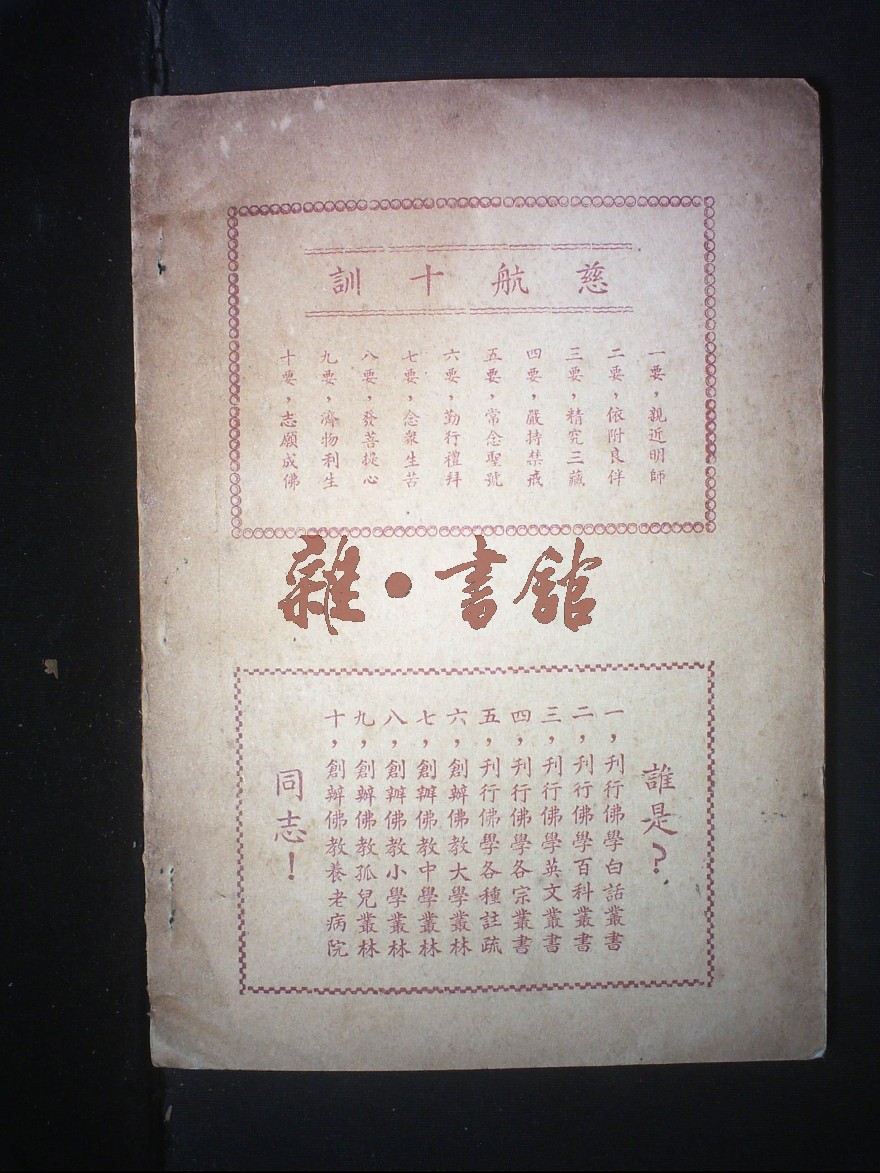 慈航十訓
一要，親近明師
二要，依附良伴
三要，精究三藏
四要，嚴持禁戒
五要，常念聖號
六要，勤行禮拜
七要，念衆生苦
八要，發菩提心
九要，濟物利生
十要，志願成佛
雜·書館
誰是？
一，刊行佛學白話叢書
二，刊行佛學百科叢書
三，刊行佛學英文叢書
四，刊行佛學各宗叢書
五，刊行佛學各種註疏
六，創辦佛教大學叢林
七，創辦佛教中學叢林
八，創辦佛教小學叢林
九，創辦佛教孤兒叢林
十，創辦佛教養老病院
同志！